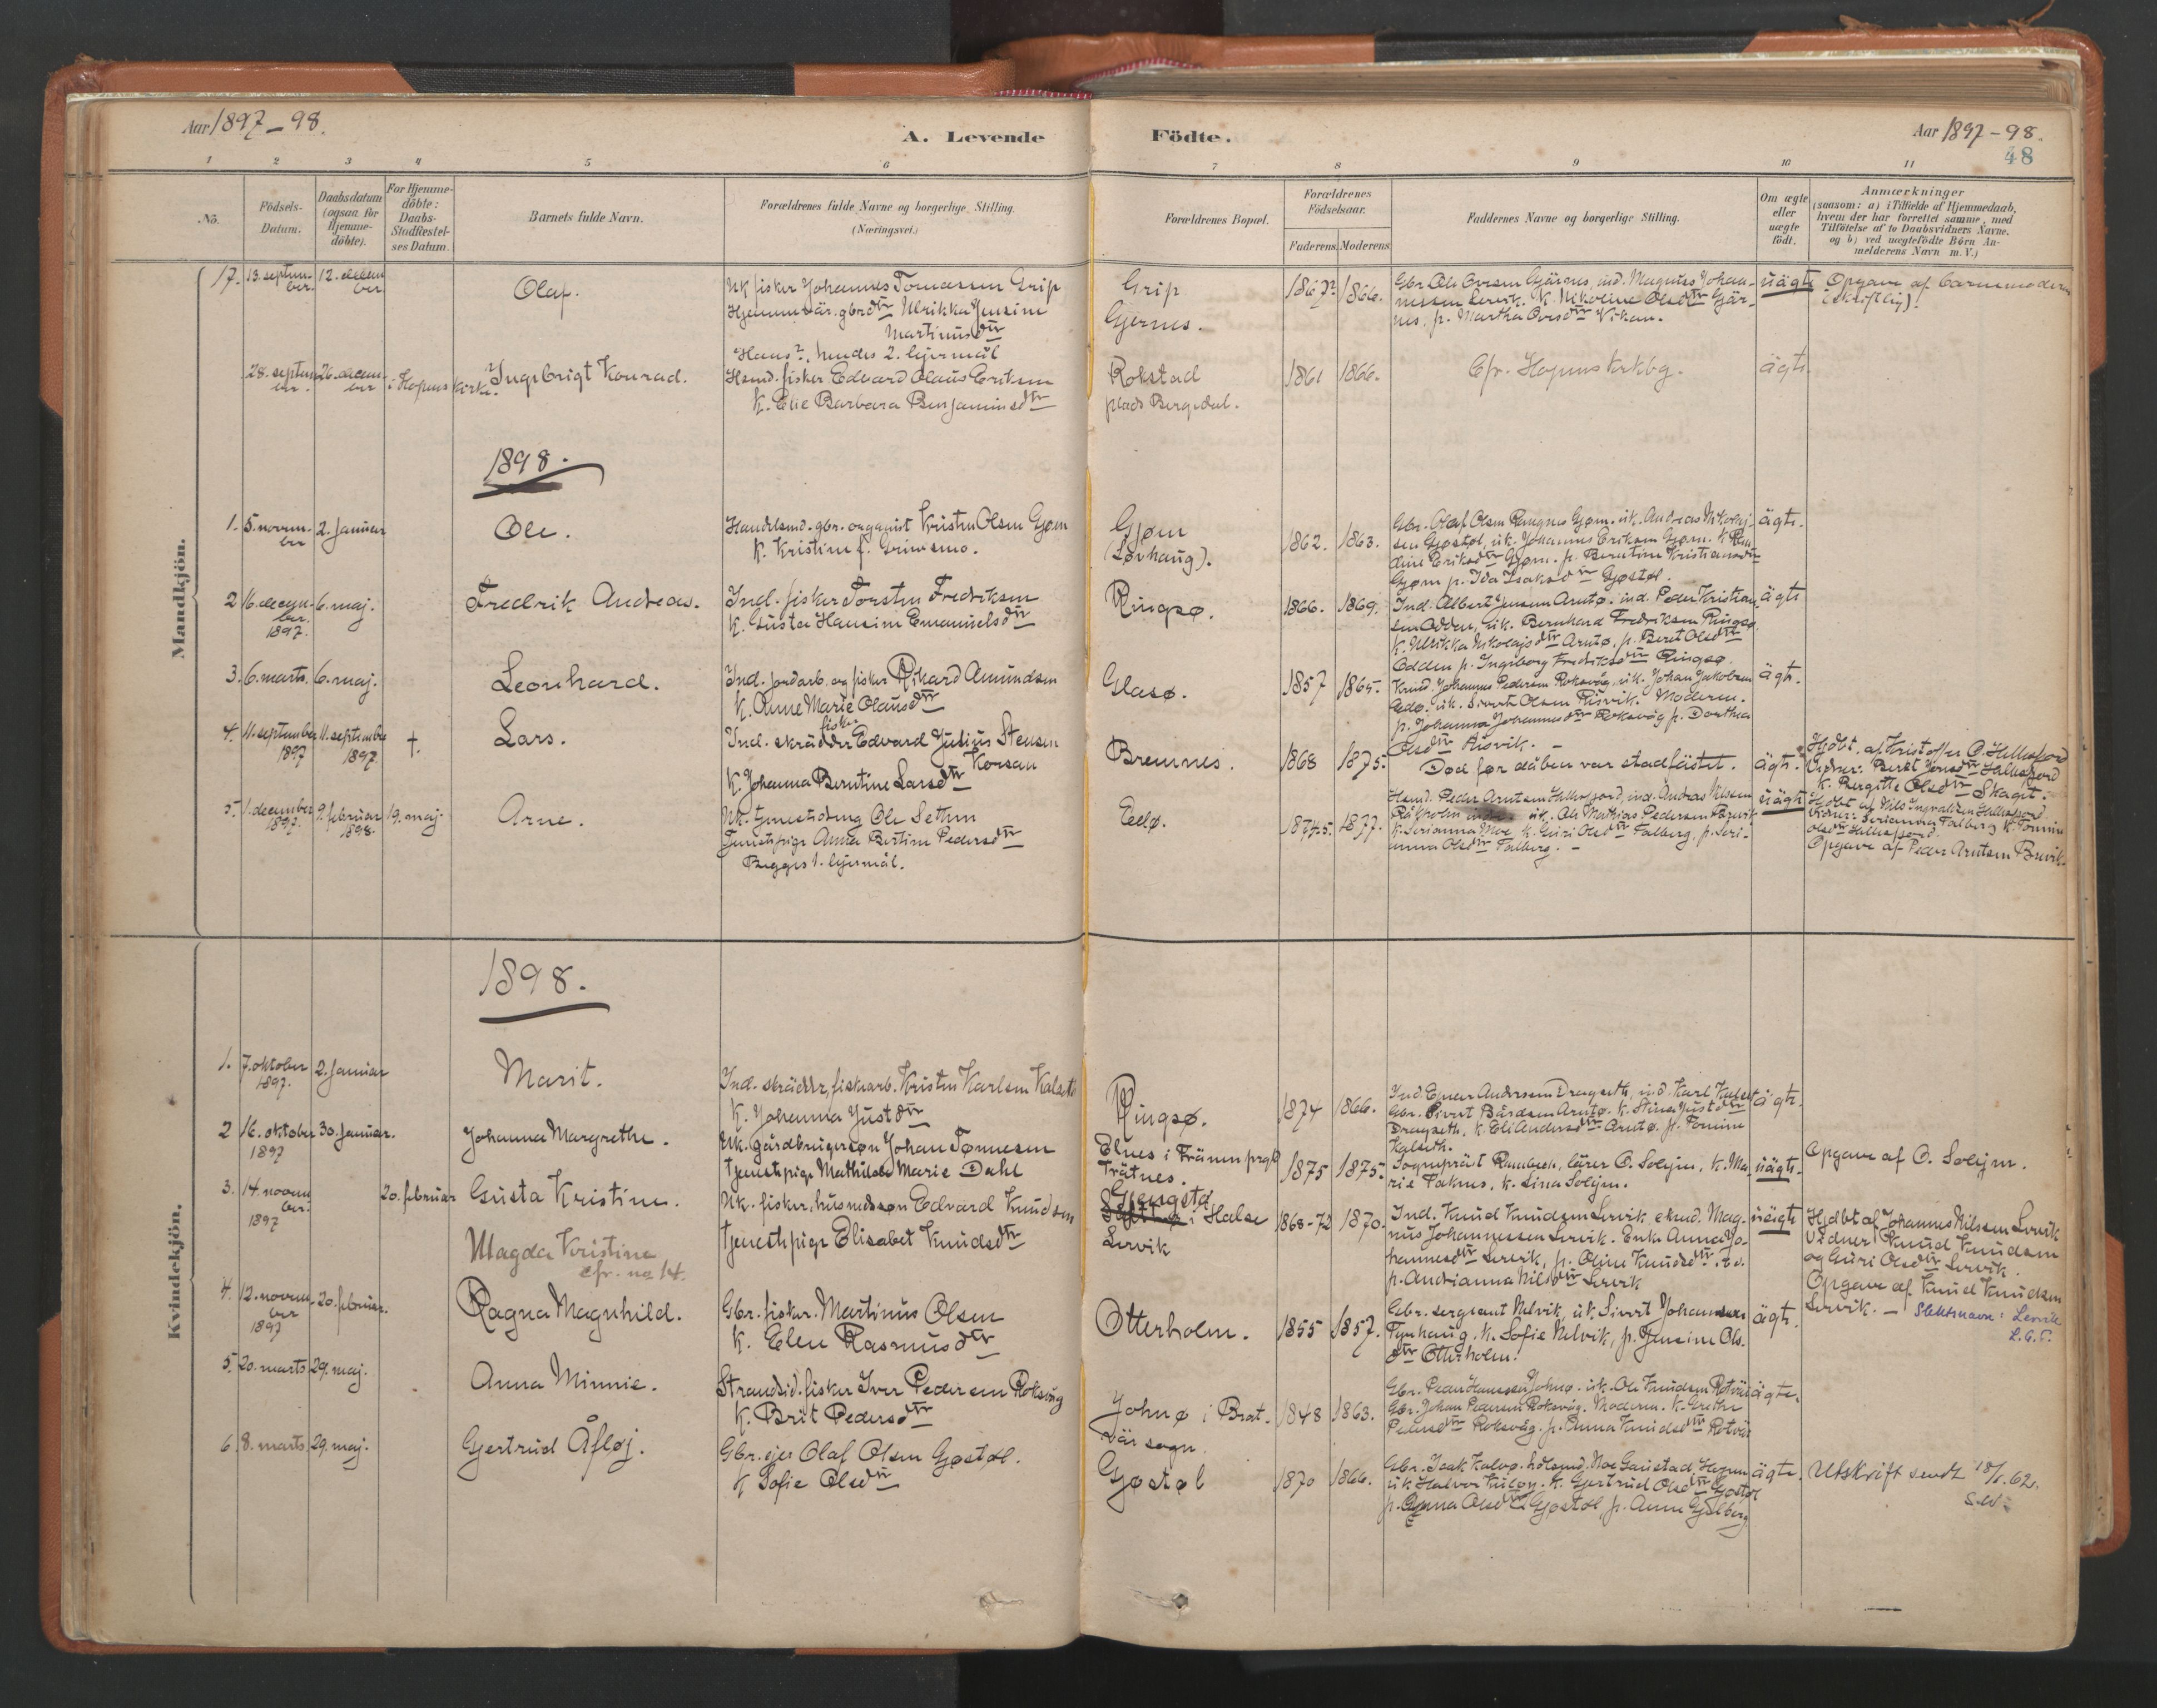 Aar 1897-98.
A. Levende
Födte.
Aar 1897-98.
48
1 2 3 4 5 6 7 8 9 10 11
No.
Födsels-
Datum.
Daabsdatum
(ogsaa for
Hjemme-
döbte).
For Hjemme-
döbte:
Daabs-
Stadfæstel-
ses Datum.
Barnets fulde Navn.
Forældrenes fulde Navne og borgerlige Stilling.
(Næringsvei.)
Forældrenes Bopæl.
Forældrenes
Födselsaar.
Faderens. Moderens.
Faddernes Navne og borgerlige Stilling.
Om ægte
eller
uægte
födt.
Anmærkninger
(saasom: a) i Tilfælde af Hjemmedaab,
hvem der har forrettet samme, med
Tilföielse af to Daabsvidners Navne.
og b) ved uægtefödte Börn An-
melderens Navn m. V.)
Mandkjön.
17. 13. septem-
ber.
12. decem
ber
Olaf.
Uk fisker Johannes Tomassen Grip
Hjemmevär. gbrdtr Ulrikka Jensine
Martinusdtr
Hans?, hendes 2. lejermål
Grip
Gjernes.
1867? 1866.
nessen Lervik. K. Nikoline Olsdtr Gjär-
nes, p. Martha Orsdtr Vikan.
uägte
Opgave af barnemoderen
(skriftlig).
28. septem
ber.
26. decem-
ber
i Hopens kirke.
Ingebrigt Konrad.
Husmd. fisker Edvard Olaus Eriksen
K. Else Barbara Benjaminsdtr
Rokstad
plads Bergedal.
1861 1866.
Cfr. Hopens Kirkbg.
ägte
1898.
1. 5. novem-
ber
2. Januar
Ole.
Handelsmd. gbr. organist Kristen Olsen Gjøen
K. Kristine f. Grimsmo.
Gjøen
(Løvhaug).
1862. 1863.
Gbr. Olaf Olsen Rangnes Gjøen. uk. Andreas Nikolaj-
sen Gjøstøl, uk. Johannes Eriksen Gjøen. K. Ran-
dine Eriksdtr Gjøen. p. Berntine Kristiansdtr
Gjøen p. Ida Isaksdtr Gjøstøl.
ägte.
2 16. decem-
ber.
1897.
6. maj.
Fredrik Andreas.
Ind. fisker Torsten Fredriksen
K. Gusta Hansine Emanuelsdtr
Ringsø.
1866. 1869.
Ind. Albert Jensen Arntø. ind. Peder Kristian-
sen Odden, uk. Bernhard Fredriksen Ringsø.
K. Ulrikka Nikolajsdtr Arntø, p. Beret Olsdtr
Odden p. Ingeborg Fredriksdtr Ringsø.
ägte
3. 6. marts. 6. maj.
Leonhard.
Ind. jordarb. og fisker Rikard Amundsen
K. Anne Marie Olausdtr
Glasø.
1857 1865.
Johannes Pedersen Roksvåg, uk. Johan Jakobsen
Edø. uk. Sivert Olsen Risvik. Moderen.
p. Johanna Johannesdtr Roksvåg p. Dorthea
Olsdtr Risvik. -
ägte.
4. 11. september
1897
11. septembe
1897.
†.
Lars.
fisker
Ind. skrädder Edvard Julius Stensen
Korsan
K. Johanna Berntine Larsdtr
Bremnes.
1868 1875.
Död før dåben var stadfästet.
ägte.
Hjdbt. af Kristoffer O. Hellesfjord
Vidner: Beret Jensdtr Hellesfjord
K. Bergitte Olsdtr Skaget.
5. 1. december
1897.
9. februar
1898.
19. maj.
Arne.
Uk. Tjenestdreng Ole Sethen
Tjenestpige Anna Bertine Pedersdtr
Begges 1. lejermål.
Edø.
1874-5. 1877.
Husmd. Peder Arntsen Hellesfjord, ind. Andreas Nilsen
uk. Ole Mathias Pedersen Brevik
K. Serianna Moe K. Guri Olsdtr Falberg, p. Seri-
anna Olsdtr Falberg. -
uägte
Hjdbt af Nils Ingvaldsen Hellesfjord
Vidner: Serianna Falberg K. Tomine
Olsdtr Hellesfjord.
Opgave af Peder Arntsen Brevik.
Kvindekjön.
1898.
1. 7. oktober
1897.
2. Januar
Marit.
Ind. skrädder, fiskarb. Kristen Karlsen Kalseth
K. Johanna Justdtr
Ringsø.
1874 1866.
Ind. Einar Andersen Dragseth, ind. Karl Kalset
Gbr. Sivert Bårdsen Arntø. K. Stina Justdtr
Dragseth, K. Eli Andersdtr Arntø. p. Tomine
Kalseth.
ägte.
2 16. oktober
1897
30. januar.
Johanna Margrethe.
Uk. gårdbrugersøn Johan Tønnesen
Tjenestpige Mathilde Marie Dahl
Elnes i Främn prgd
Trätnes.
1875 1875.
Sognepräst Rumbech, lärer O. Solejm, K. Ma-
rie Faknes. K. Lina Solejm.
uägte.
Opgave af O. Solejm.
3. 14. novem
ber.
1897
20. februar
Gusta Kristine.
Magda Kristine
cfr. no 14.
Uk. fisker, husmdssøn Edvard Knudsen
Tjenestpige Elisabet Knudsdtr
Gjengstø
i Halse
Lervik
1868-72 1870.
Ind. Knud Knudsen Lervik Mag-
nus Johannessen Lervik. Enke Anna Jo-
hannesdtr Lervik, p. Oline Knudsdtr. ibd.
p. Andrianna Nilsdtr Lervik
uägte
Hjdbt af Johannes Nilsen Lervik
Vidner Knud Knudsen
og Guri Olsdtr Lervik.
Opgave af Knud Knudsen
Lervik. - Slektsnavn: Lervik
L.G.T.
4. 12. novem-
ber
1897
20. februar.
Ragna Magnhild.
Gbr. fisker. Martinus Olsen
K. Elen Rasmusdtr
Otterholm.
1855 1857.
Gbr. sergeant Nelvik, uk. Sivert Johansen
Tynhaug. K. Sofie Nelvik, p. Jensine Ols-
dtr Otterholm.
ägte.
5. 20. marts 29. maj.
Anna Minnie.
Strandsid. fisker Iver Pedersen Roksvåg
K. Brit Pedersdtr
Johnø i Brat-
vär sogn.
1848 1863.
Gbr. Peder Hanssen Johnø. uk. Ole Knudsen Rotvär
Gbr. Johan Pedersen Roksvåg. Moderen. K. Grethe
Pedersdtr Roksvåg. p. Anna Knudsdtr Rotvär
ägte.
6. 8. marts. 29. maj.
Gertrud Åfløj.
Gbr. ejer Olaf Olsen Gjøstøl.
K Sofie Olsdtr
Gjøstøl
1870 1866.
Gbr. Isak Kalvø. Moe Gaustad, Hopen
uk. Halvor Kuløy. K. Gjertrud Olsdtr Gjøstøl
p. Anna Olsdtr Gjøstøl, p. Anne Gjelberg
ägte.
Utskrift sendt 18/1. 62.
S.W.